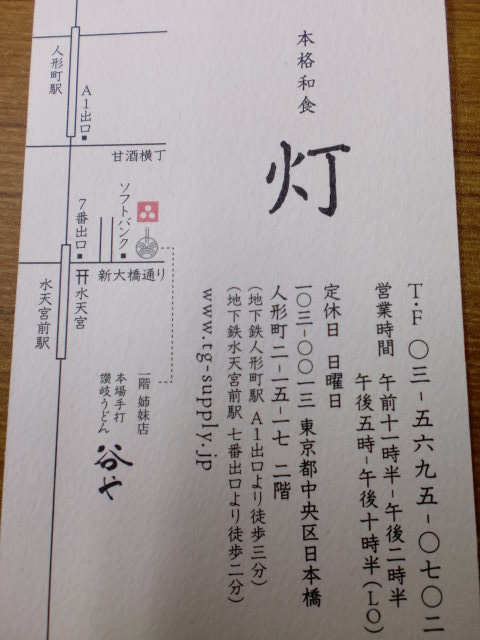 本格和食
灯
T・F 〇三-五六九五-〇七〇二
営業時間 午前十一時半-午後二時半
午後五時-午後十時半(LO)
定休日 日曜日
一〇三-〇〇一三 東京都中央区日本橋
人形町二-一五-一七 二階
(地下鉄人形町駅 A1出口より徒歩三分)
(地下鉄水天宮前駅 七番出口より徒歩二分)
www.tg-supply.jp
人形町駅
A1出口
甘酒横丁
ソフトバンク
7番出口
新大橋通り
水天宮
水天宮前駅
一階 姉妹店
本場手打
讃岐うどん
谷や